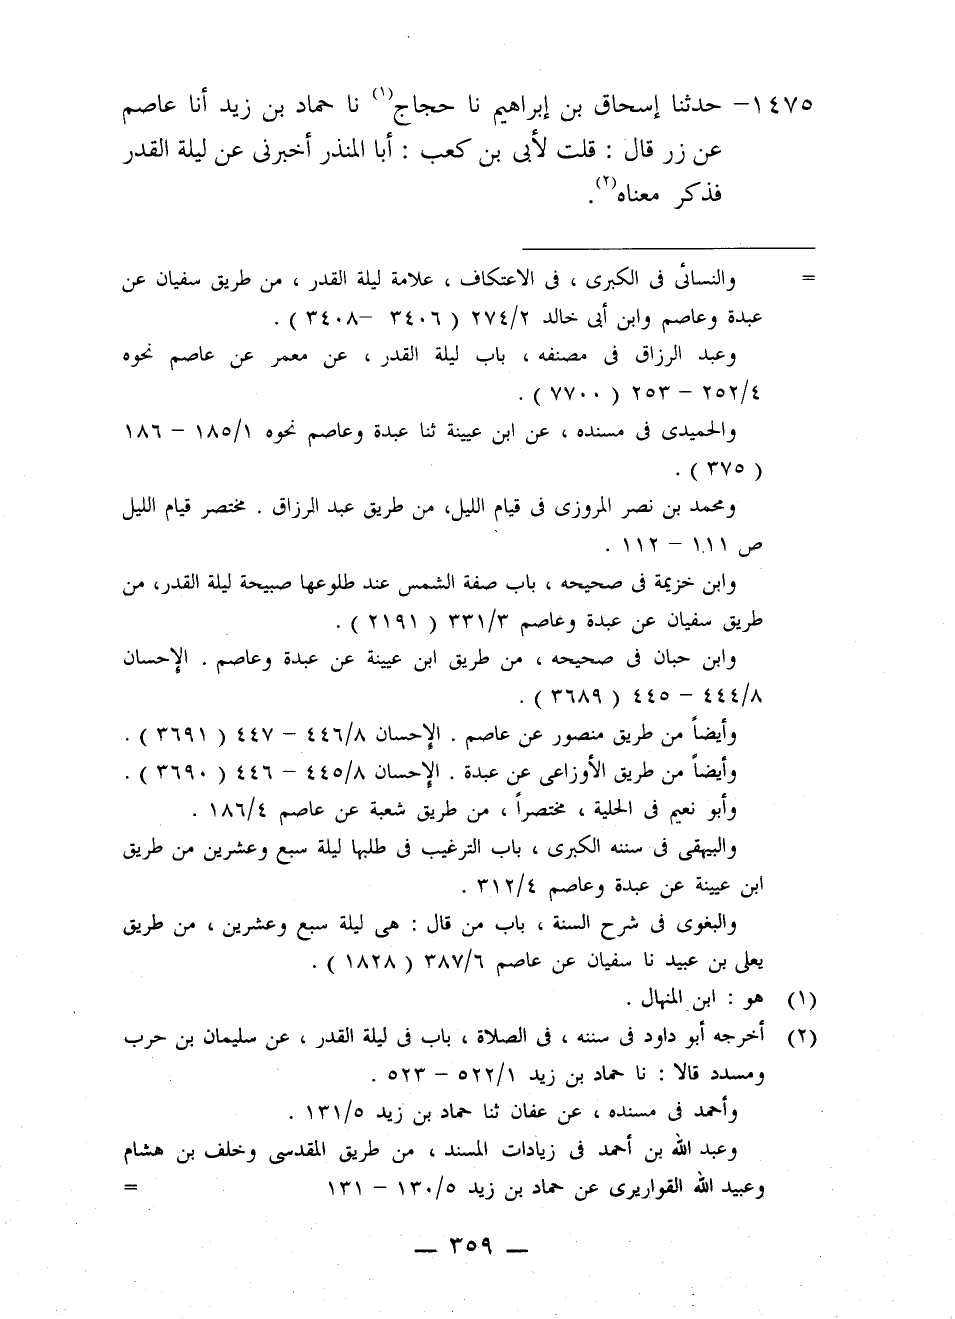 ١٤٧٥- حدثنا إسحاق بن إبراهيم نا حجاج(١) نا حماد بن زيد أنا عاصم
عن زر قال : قلت لأبى بن كعب : أبا المنذر أخبرنى عن ليلة القدر
فذكر معناه(٢).
= والنسائى فى الكبرى ، فى الاعتكاف ، علامة ليلة القدر ، من طريق سفيان عن
عبدة وعاصم وابن أبى خالد ٢٧٤/٢ ( ٣٤٠٦ –٣٤٠٨ ) .
وعبد الرزاق فى مصنفه ، باب ليلة القدر ، عن معمر عن عاصم نحوه
٢٥٢/٤ – ٢٥٣ ( ٧٧٠٠ ) .
والحميدى فى مسنده ، عن ابن عيينة ثنا عبدة وعاصم نحوه ١٨٥/١ – ١٨٦
( ٣٧٥ ) .
ومحمد بن نصر المروزى فى قيام الليل، من طريق عبد الرزاق . مختصر قيام الليل
ص ١١١ – ١١٢ .
وابن خزيمة فى صحيحه ، باب صفة الشمس عند طلوعها صبيحة ليلة القدر، من
طريق سفيان عن عبدة وعاصم ٣٣١/٣ ( ٢١٩١ ) .
وابن حبان فى صحيحه ، من طريق ابن عيينة عن عبدة وعاصم . الإحسان
٤٤٤/٨ – ٤٤٥ ( ٣٦٨٩ ) .
وأيضاً من طريق منصور عن عاصم . الإحسان ٤٤٦/٨ – ٤٤٧ ( ٣٦٩١ ) .
وأيضاً من طريق الأوزاعى عن عبدة . الإحسان ٤٤٥/٨ – ٤٤٦ ( ٣٦٩٠ ) .
وأبو نعيم فى الحلية ، مختصراً ، من طريق شعبة عن عاصم ١٨٦/٤ .
والبيهقى فى سننه الكبرى ، باب الترغيب فى طلبها ليلة سبع وعشرين من طريق
ابن عيينة عن عبدة وعاصم ٣١٢/٤ .
والبغوى فى شرح السنة ، باب من قال : هى ليلة سبع وعشرين ، من طريق
يعلى بن عبيد نا سفيان عن عاصم ٣٨٧/٦ ( ١٨٢٨ ) .
(١) هو : ابن المنهال .
(٢) أخرجه أبو داود فى سننه ، فى الصلاة ، باب فى ليلة القدر ، عن سليمان بن حرب
ومسدد قالا : نا حماد بن زيد ٥٢٢/١ – ٥٢٣ .
وأحمد فى مسنده ، عن عفان ثنا حماد بن زيد ١٣١/٥ .
وعبد الله بن أحمد فى زيادات المسند ، من طريق المقدسى وخلف بن هشام
وعبيد الله القواريرى عن حماد بن زيد ١٣٠/٥ – ١٣١ =
— ٣٥٩ —